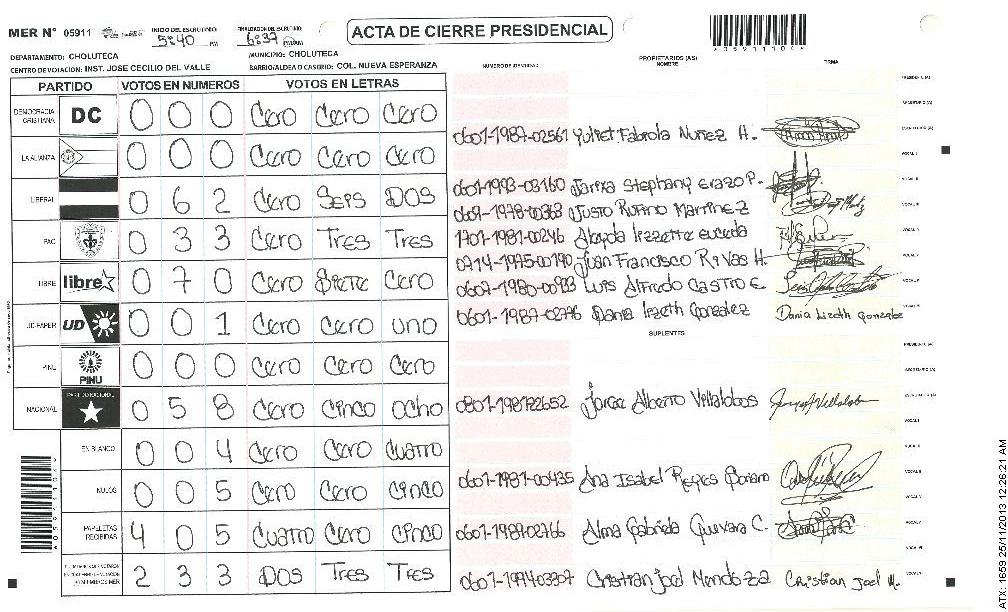 MER N° 05911 INICIO DEL ESCRUTINIO 5:40 PM FINALIZACION DEL ESCRUTINIO 6:39 PM ACTA DE CIERRE PRESIDENCIAL
DEPARTAMENTO: CHOLUTECA MUNICIPIO: CHOLUTECA
CENTRO DE VOTACION: INST. JOSE CECILIO DEL VALLE BARRIO/ALDEA O CASERIO: COL. NUEVA ESPERANZA
PARTIDO VOTOS EN NUMEROS VOTOS EN LETRAS
DEMOCRACIA CRISTIANA DC 0 0 0 Cero Cero Cero
LA ALIANZA 0 0 0 Cero Cero Cero
LIBERAL 0 6 2 Cero Seis DOS
PAC 0 3 3 Cero Tres Tres
LIBRE libre 0 7 0 Cero Siete Cero
UD-FAPER UD 0 0 1 Cero Cero uno
PINU PINU 0 0 0 Cero Cero Cero
NACIONAL PARTIDO NACIONAL 0 5 8 Cero Cinco Ocho
EN BLANCO 0 0 4 Cero Cero Cuatro
NULOS 0 0 5 Cero Cero Cinco
PAPELETAS RECIBIDAS 4 0 5 Cuatro Cero Cinco
2 3 3 DOS Tres Tres
NUMERO DE IDENTIDAD PROPIETARIOS (AS) NOMBRE FIRMA
PRESIDENTE (A)
SECRETARIO (A)
0601-1987-02561 Nuñez H. ESCRUTADOR (A)
VOCAL I
0601-1993-03160 Stephany Erazo P. VOCAL II
Justo Rufino Martinez VOCAL III
1701-1981-00246 Izzette VOCAL IV
Juan Francisco Rivas H. VOCAL V
Luis Alfredo Castro E.
0601-1987-02776 Dania Lizeth Gonzalez Dania Lizeth Gonzalez
SUPLENTES
PRESIDENTE (A)
SECRETARIO (A)
Jorge Alberto Villalobos Villalobos ESCRUTADOR (A)
VOCAL I
VOCAL II
0601-1981-00435 Ana Isabel Reyes VOCAL III
VOCAL IV
Alma Gabriela Guevara C. VOCAL V
Cristian Joel Mendoza Cristian Joel M.
ATX: 1659 25/11/2013 12:26:21 AM